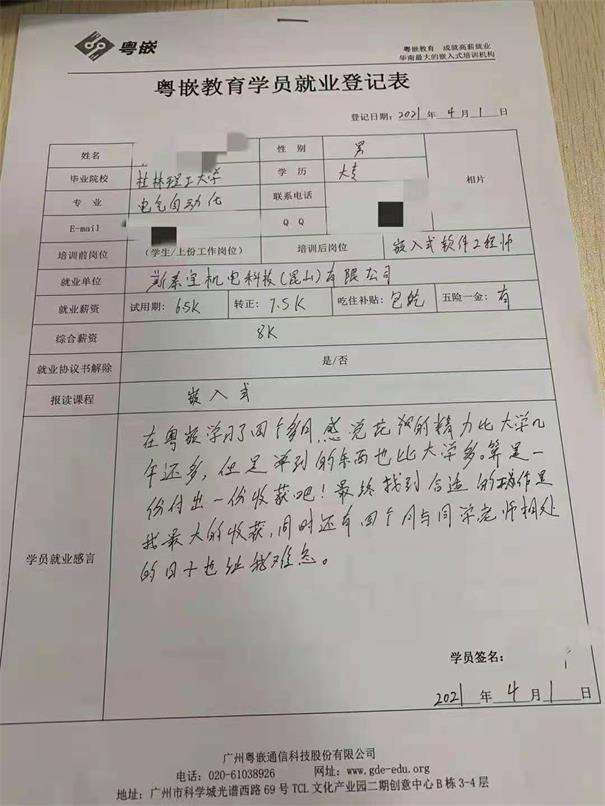 粤嵌
粤嵌教育 成就高薪就业
华南最大的嵌入式培训机构
粤嵌教育学员就业登记表
登记日期: 2021 年 4 月 1 日
姓名 性 别 男
毕业院校 桂林理工大学 学 历 大专 相片
专 业 电气自动化 联系电话
E-mail Q Q
培训前岗位 (学生/上份工作岗位) 培训后岗位 嵌入式软件工程师
就业单位 新泰宜机电科技(昆山)有限公司
就业薪资 试用期: 6.5K 转正: 7.5K 吃住补贴: 包吃 五险一金: 有
综合薪资 8K
就业协议书解除 是/否
报读课程 嵌入式
在粤嵌学习了四个多月,感觉花费的精力比大学几
年还多,但是学到的东西也比大学多。算是一
份付出一份收获吧!最终找到合适的工作是
我最大的收获,同时还有四个月与同学老师相处
学员就业感言
的日子也让我难忘。
学员签名:
2021 年 4 月 1 日
广州粤嵌通信科技股份有限公司
电话: 020-61038926 网址: www.gde-edu.org
地址: 广州市科学城光谱西路 69 号 TCL 文化产业园二期创意中心 B 栋 3-4 层